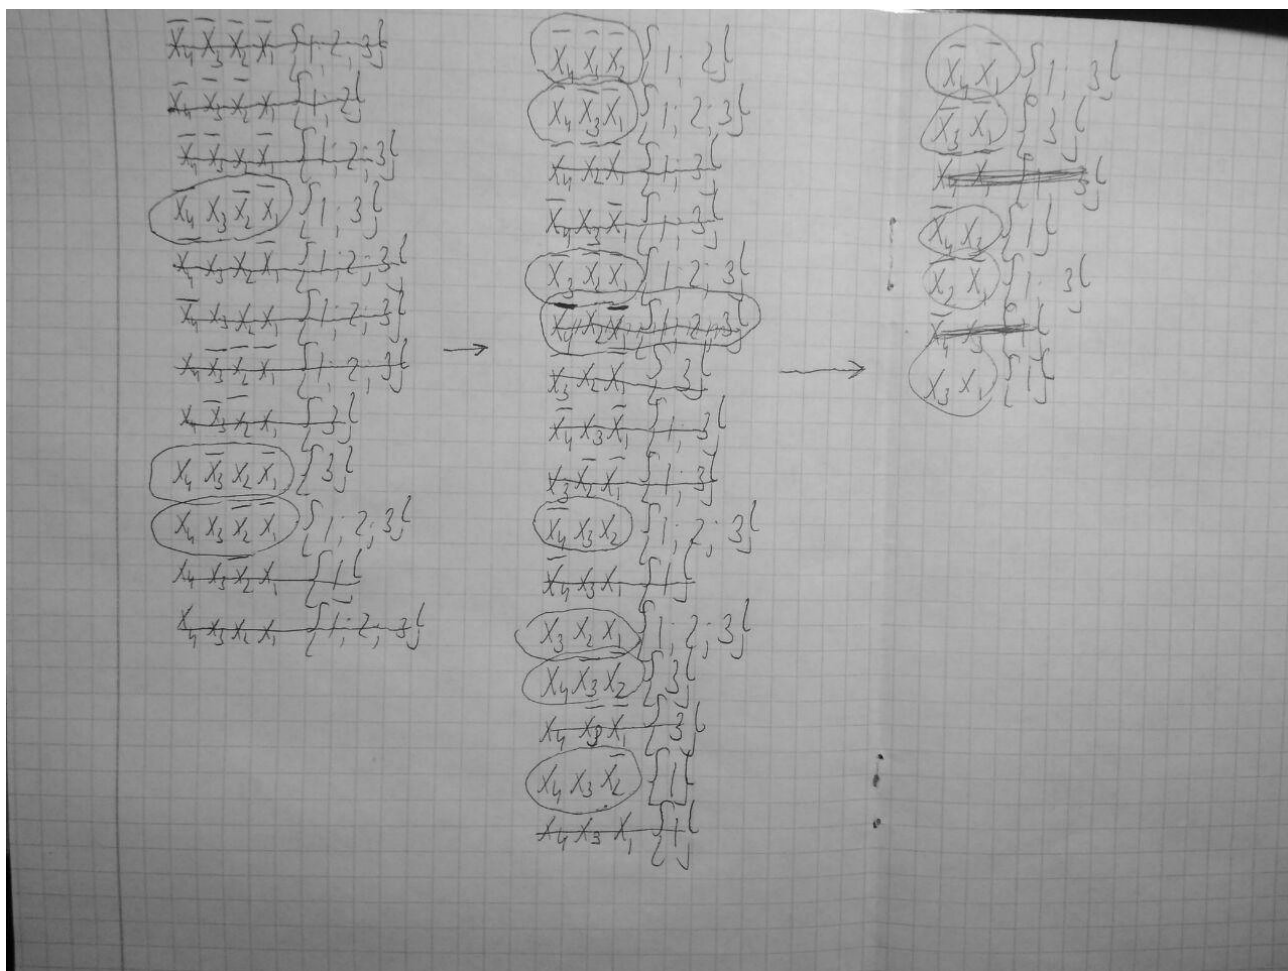 X̅₄ X̅₃ X̅₂ X̅₁ {1; 2; 3}
X̅₄ X̅₃ X̅₂ X₁ {1; 2}
X̅₄ X̅₃ X₂ X̅₁ {1; 2; 3}
X̅₄ X₃ X̅₂ X̅₁ {1; 3}
X̅₄ X₃ X₂ X̅₁ {1; 2; 3}
X̅₄ X₃ X₂ X₁ {1; 2; 3}
X₄ X̅₃ X̅₂ X̅₁ {1; 2; 3}
X₄ X̅₃ X̅₂ X₁ {3}
X₄ X̅₃ X₂ X̅₁ {3}
X₄ X₃ X̅₂ X̅₁ {1; 2; 3}
X₄ X₃ X̅₂ X₁ {1}
X₄ X₃ X₂ X₁ {1; 2; 3}
→
{1; 2}
{1; 2; 3}
{1; 3}
X̅₄ X₃ X̅₁ {1; 3}
X̅₃ X̅₂ X̅₁ {1; 2; 3}
{1; 2; 3}
{3}
X̅₄ X₃ X̅₁ {1; 3}
X₃ X̅₂ X̅₁ {1; 3}
X̅₄ X₃ X₂ {1; 2; 3}
X̅₄ X₃ X₁ {1}
X₃ X₂ X₁ {1; 2; 3}
X₄ X̅₃ X̅₂ {3}
X₄ X̅₃ X̅₁ {3}
X₄ X₃ X̅₂ {1}
X₄ X₃ X₁ {1}
→
X̅₄ X̅₁ {1; 3}
X̅₃ X̅₁ {3}
{1; 3}
{1}
X̅₂ X̅₁ {1; 3}
X₃ X₁ {1}